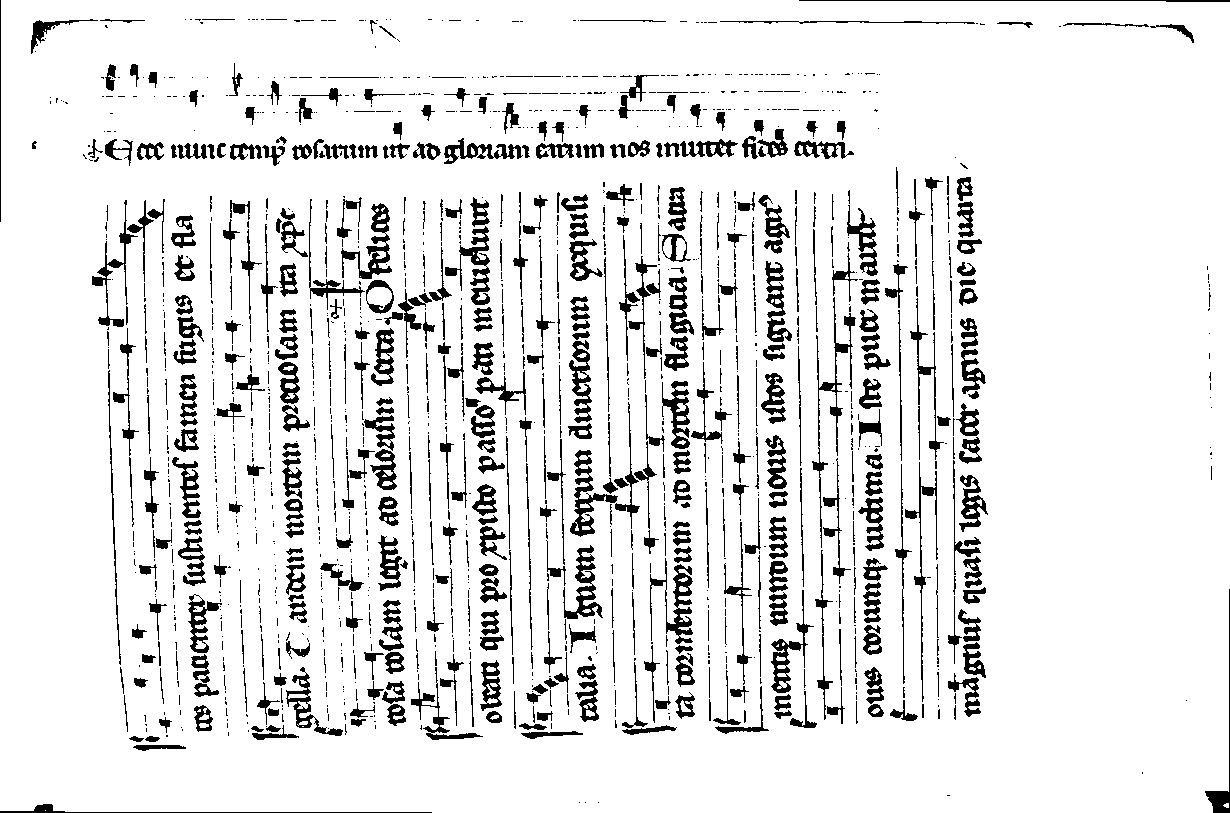 Ecce nunc temp rosarum ut ad gloriam earum nos inuitet fides certi.
tes pacienter sustinentes famen fugis et fla
gella. Tandem mortem preciosam ita xpc
rosa rosam legit ad celorum serta. O felices
qui pro xpisto passo pati meruerunt
talia. Ignem ferrum diuersorum exquisi
ta tormentorum ad mortem flagicia. Sacra
mentis mundum nouis istos signant agni
ouis eorumq; uictima. Iste puer
magnus quasi legis sacer agnus die quarta